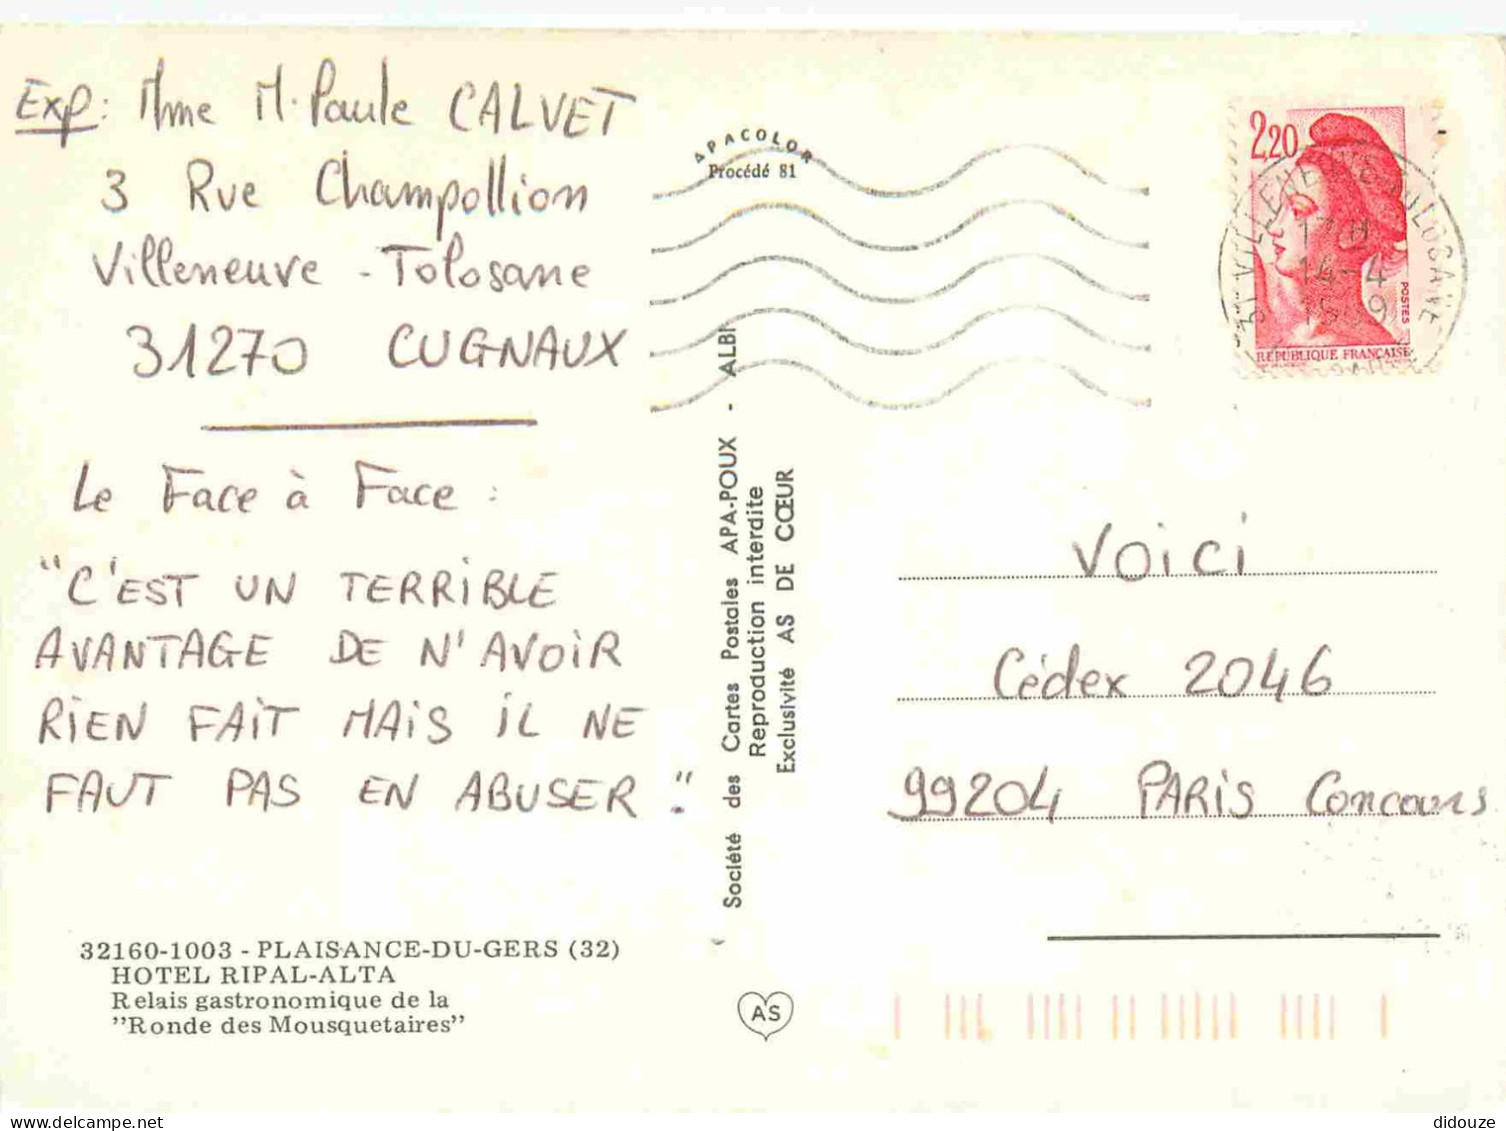 Exp: Mme M. Paule CALVET
3 Rue Champollion
Villeneuve - Tolosane
31270 CUGNAUX
Le Face à Face :
"C'EST UN TERRIBLE
AVANTAGE DE N'AVOIR
RIEN FAIT MAIS IL NE
FAUT PAS EN ABUSER."
32160-1003 - PLAISANCE-DU-GERS (32)
HOTEL RIPAL-ALTA
Relais gastronomique de la
"Ronde des Mousquetaires"
APACOLOR
Procédé 81
Société des Cartes Postales APA-POUX - ALBI
Reproduction interdite
Exclusivité AS DE CŒUR
AS
2,20
POSTES
REPUBLIQUE FRANÇAISE
31 VILLENEUVE TOLOSANE
17 H
14-4
VOICI
Cédex 2046
99204 PARIS Concours
delcampe.net
didouze